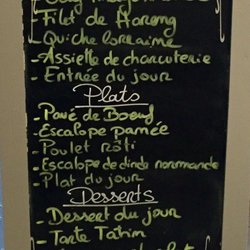 - Filet de Hareng
- Quiche lorraine
- Assiette de charcuterie
- Entrée du jour
Plats
- Pavé de Boeuf
- Escalope panée
- Poulet rôti
- Escalope de dinde normande
- Plat du jour
Desserts
- Dessert du jour
- Tarte Tatin